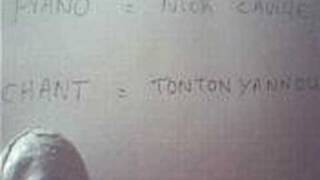 PIANO = NICK
CHANT = TONTON YANNOU